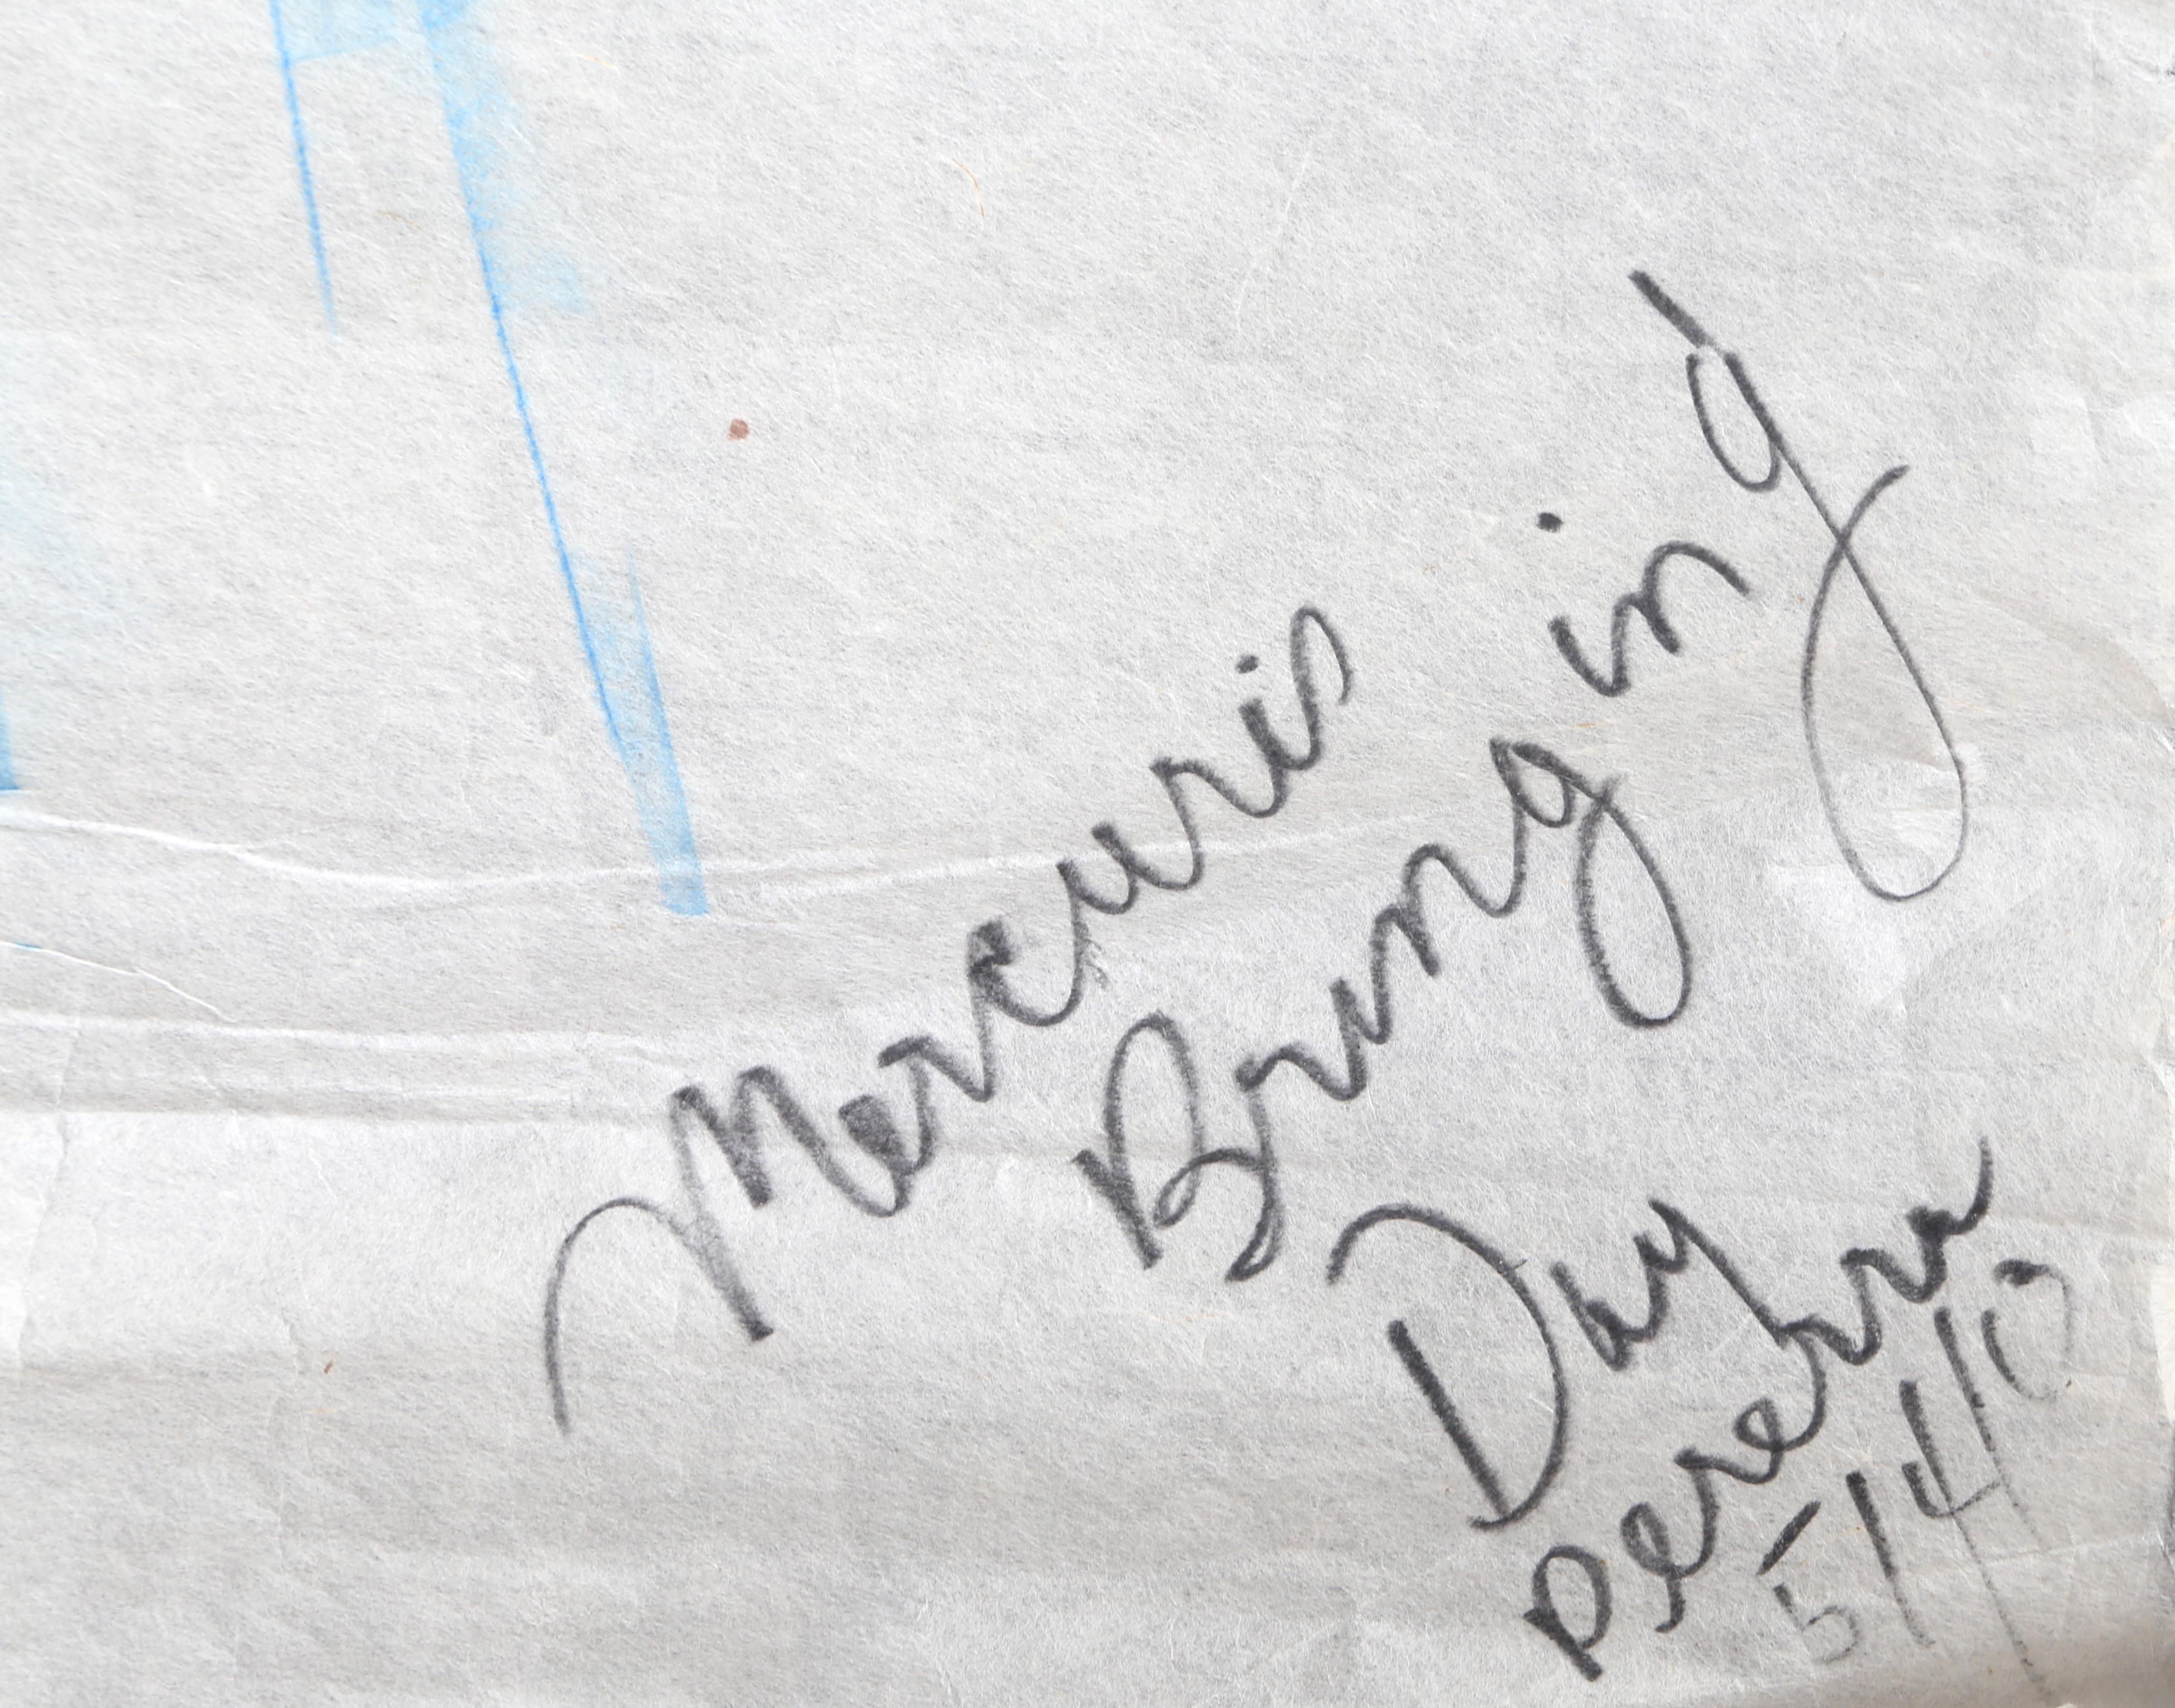 Mercuris
Bring ing
Day
perera